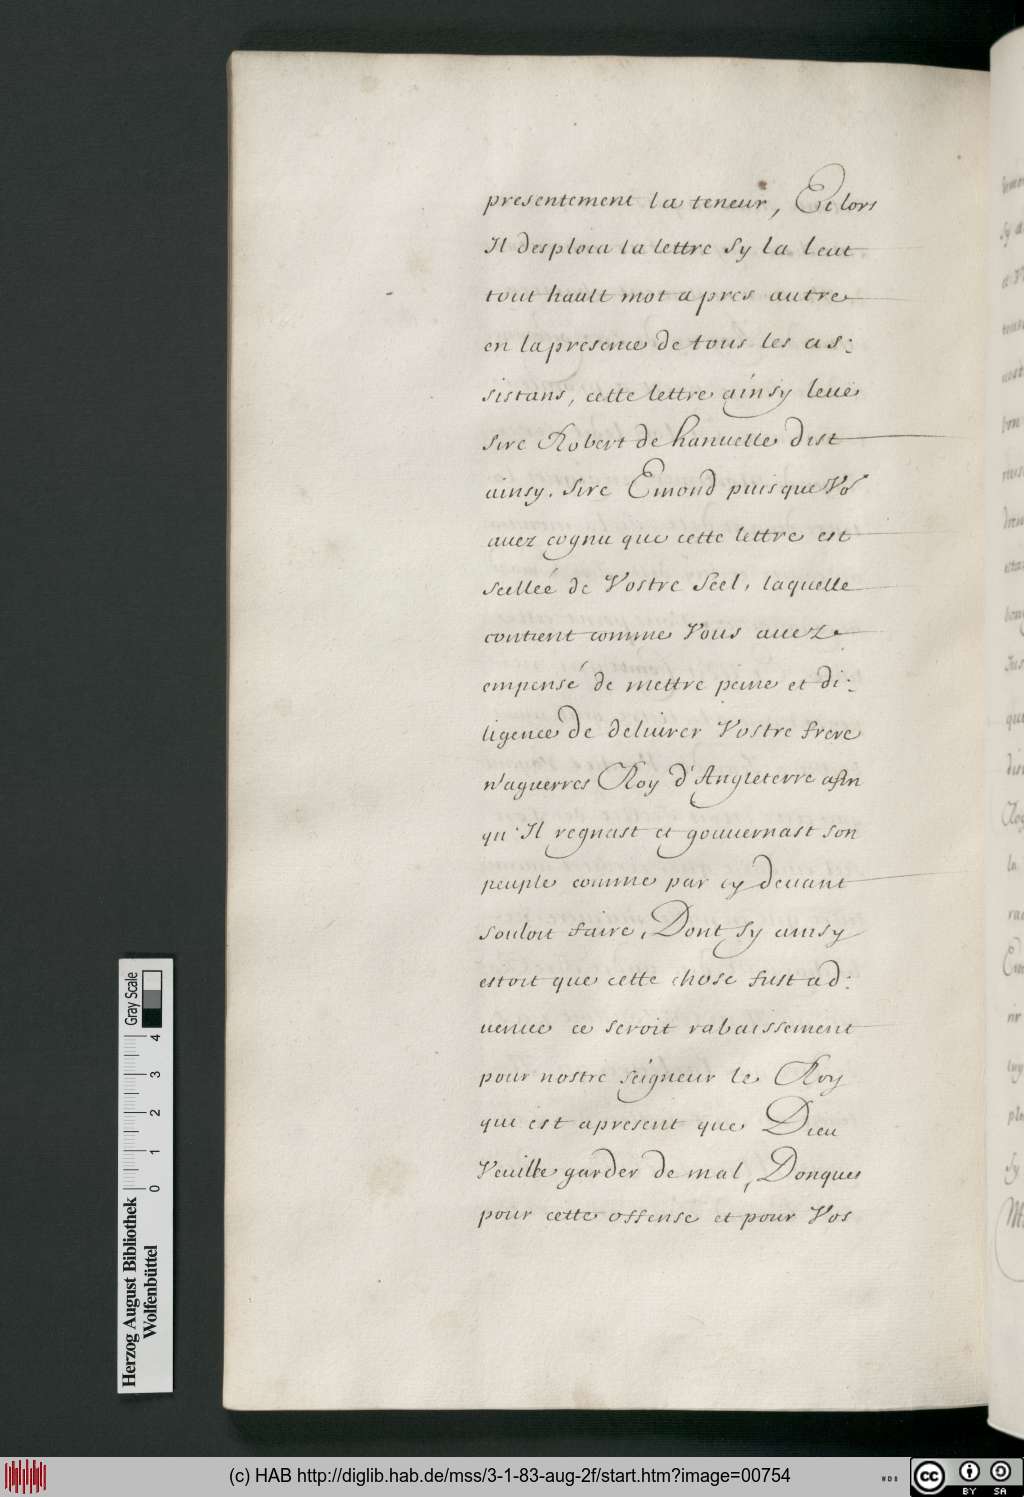 presentement la teneur, Et lors
Il desploia la lettre sy la leut
tout hault mot apres autre
en la presence de tous les as:
sistans, cette lettre ainsy leüe
Sire Robert de hanuelle dist
ainsy. Sire Emond puisque Vo⁹
auez cognu que cette lettre est
scelleé de Vostre Seel, laquelle
contient comme Vous auez
empensé de mettre peine et di:
ligence de deliurer Vostre frere
n'aguerres Roy d'Angleterre afin
qu'Il regnast et gouuernast son
peuple comme par cy deuant
souloit faire, Dont sy ainsy
estoit que cette chose fust ad:
uenue ce seroit rabaissement
pour nostre seigneur le Roy
qui est apresent que Dieu
Veuille garder de mal, Donques
pour cette offense et pour Vos
Herzog August Bibliothek
Wolfenbüttel
0 1 2 3 4
Gray Scale
(c) HAB http://diglib.hab.de/mss/3-1-83-aug-2f/start.htm?image=00754
WDB
CC BY SA